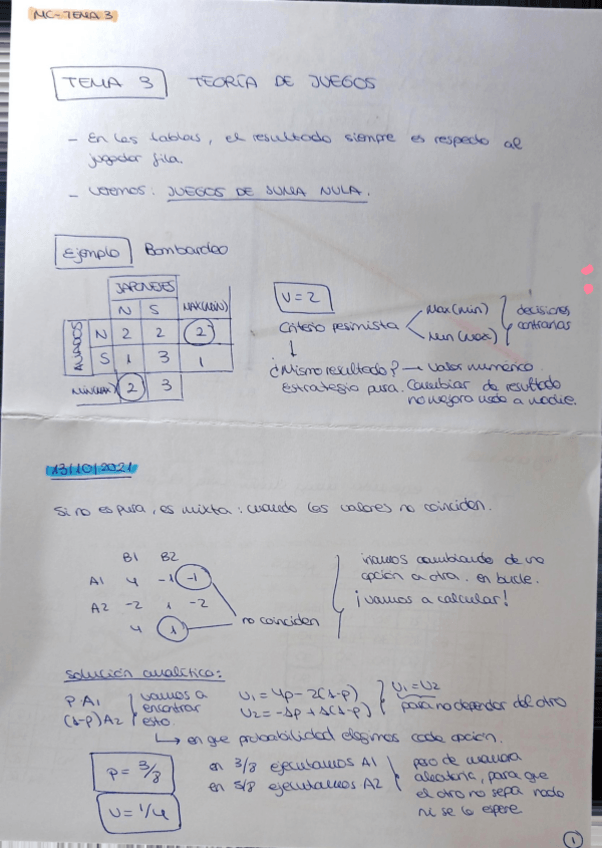 MC-TEMA 3
TEMA 3 TEORÍA DE JUEGOS
- En las tablas, el resultado siempre es respecto al
jugador fila.
- Veremos: JUEGOS DE SUMA NULA.
Ejemplo Bombardeo
JAPONESES
N S MAX(MIN)
ALIADOS
N 2 2 2
S 1 3 1
MIN(MAX) 2 3
V=2
Criterio pesimista
Max(min)
Min(Max)
decisiones
contrarias
↓
¿Mismo resultado? → Valor numérico.
estrategia pura. Cambiar de resultado
no mejora nada a nadie.
13/10/2021
Si no es pura, es mixta: cuando los valores no coinciden.
B1 B2
A1 4 -1 -1
A2 -2 1 -2
4 1
no coinciden
iríamos cambiando de una
opción a otra. en bucle.
¡vamos a calcular!
solución analítica:
P A1
(1-p) A2
vamos a
encontrar
esto.
U1 = 4p - 2(1-p)
U2 = -1p + 1(1-p)
U1 = U2
para no depender del otro
↳ en que probabilidad elegimos cada opción.
P = 3/8
V = 1/4
en 3/8 ejecutamos A1
en 5/8 ejecutamos A2
pero de manera
aleatoria, para que
el otro no sepa nada
ni se lo espere
1